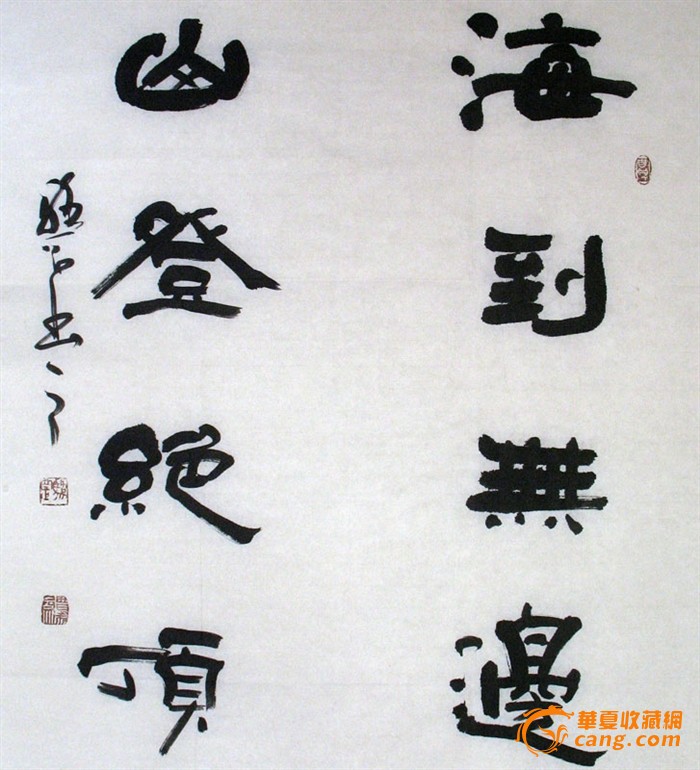 海到無邊
山登絕頂
華夏收藏網
cang.com